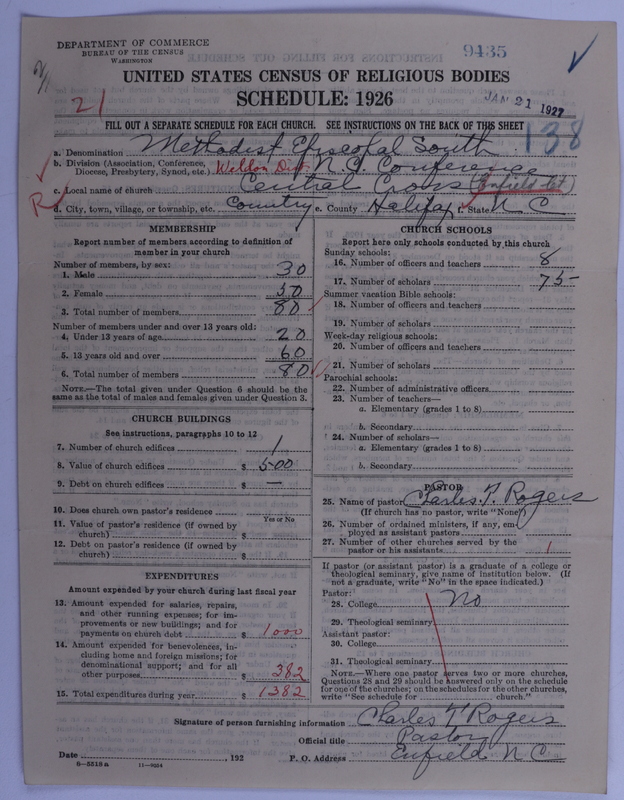 DEPARTMENT OF COMMERCE
BUREAU OF THE CENSUS
WASHINGTON
9435
UNITED STATES CENSUS OF RELIGIOUS BODIES
SCHEDULE: 1926
JAN 21 1927
21
138
FILL OUT A SEPARATE SCHEDULE FOR EACH CHURCH. SEE INSTRUCTIONS ON THE BACK OF THIS SHEET
a. Denomination Methodist Episcopal South
b. Division (Association, Conference, Diocese, Presbytery, Synod, etc.) Weldon Dist. N.C. Conference
c. Local name of church Central Cross (Enfield Ct.)
R
d. City, town, village, or township, etc. Country e. County Halifax f. State N C
MEMBERSHIP
Report number of members according to definition of member in your church
Number of members, by sex:
1. Male 30
2. Female 50
3. Total number of members 80
Number of members under and over 13 years old:
4. Under 13 years of age 20
5. 13 years old and over 60
6. Total number of members 80
NOTE.—The total given under Question 6 should be the same as the total of males and females given under Question 3.
CHURCH BUILDINGS
See instructions, paragraphs 10 to 12
7. Number of church edifices 1
8. Value of church edifices $ 500
9. Debt on church edifices $ —
10. Does church own pastor's residence
Yes or No
11. Value of pastor's residence (if owned by church) $
12. Debt on pastor's residence (if owned by church) $
EXPENDITURES
Amount expended by your church during last fiscal year
13. Amount expended for salaries, repairs, and other running expenses; for improvements or new buildings; and for payments on church debt $ 1000
14. Amount expended for benevolences, including home and foreign missions; for denominational support; and for all other purposes $ 382
15. Total expenditures during year $ 1382
CHURCH SCHOOLS
Report here only schools conducted by this church
Sunday schools:
16. Number of officers and teachers 8
17. Number of scholars 75
Summer vacation Bible schools:
18. Number of officers and teachers
19. Number of scholars
Week-day religious schools:
20. Number of officers and teachers
21. Number of scholars
Parochial schools:
22. Number of administrative officers
23. Number of teachers—
a. Elementary (grades 1 to 8)
b. Secondary
24. Number of scholars—
a. Elementary (grades 1 to 8)
b. Secondary
PASTOR
25. Name of pastor Charles T. Rogers
(If church has no pastor, write "None")
26. Number of ordained ministers, if any, employed as assistant pastors
27. Number of other churches served by the pastor or his assistants 1
If pastor (or assistant pastor) is a graduate of a college or theological seminary, give name of institution below. (If not a graduate, write "No" in the space indicated.)
Pastor:
28. College No
29. Theological seminary
Assistant pastor:
30. College
31. Theological seminary
NOTE.—Where one pastor serves two or more churches, Questions 28 and 29 should be answered only on the schedule for one of the churches; on the schedules for the other churches, write "See schedule for church."
Signature of person furnishing information Charles T Rogers
Official title Pastor
Date , 192 P. O. Address Enfield N C
8—5518a 11—9034